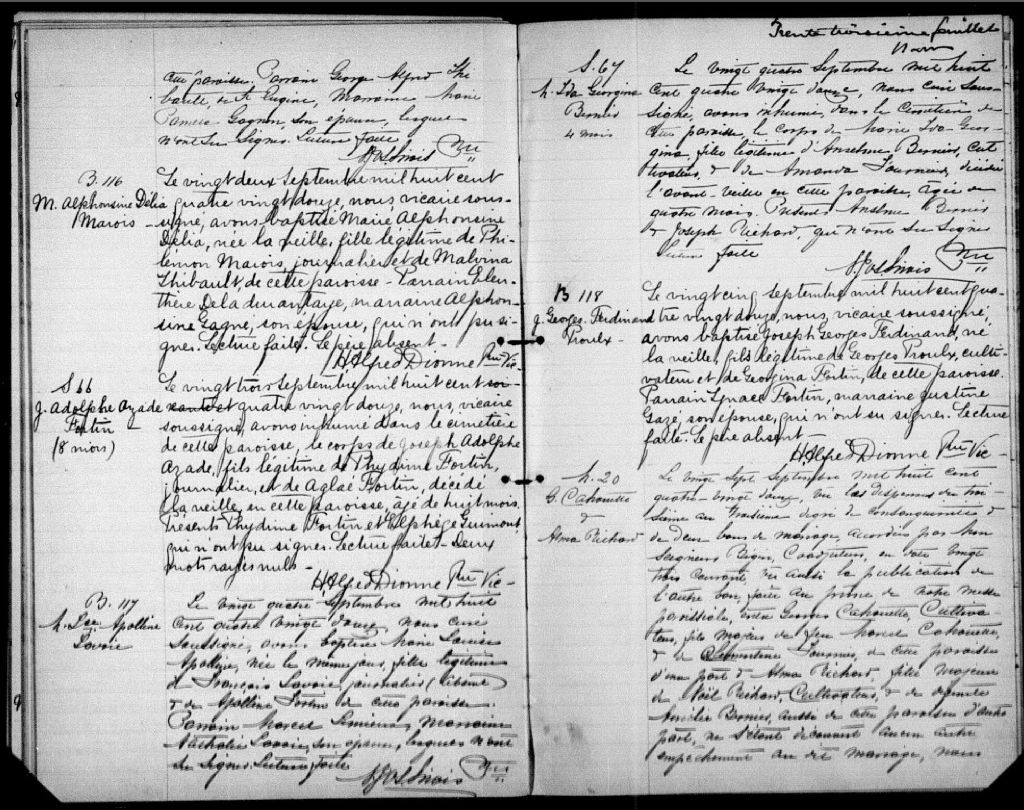 cette paroisse. Parrain George Alfred Thi
bault, de St Eugène, Marraine Marie
Gagnon son épouse, lesquels
n'ont su signer. Lecture faite
Ptre
B. 116
M. Alphonsine Délia
Marois
Le vingt deux septembre mil huit cent
quatre vingt douze, nous, vicaire sous-
signé, avons baptisé Marie Alphonsine
Délia, née la veille, fille légitime de Phi-
lémon Marois, journalier et de Malvina
Thibault, de cette paroisse - Parrain Eleu-
thère Deladurantaye, marraine Alphon-
sine Gagné, son épouse, qui n'ont pu si-
gner. Lecture faite. Le père absent -
H Alfred Dionne Ptre Vic-
S 66
J. Adolphe Azade
Fortin
(8 mois)
Le vingt trois septembre mil huit cent soi-
xante et quatre vingt douze, nous, vicaire
soussigné, avons inhumé dans le cimetière
de cette paroisse, le corps de Joseph Adolphe
Azade, fils légitime de Thydime Fortin,
journalier, et de Aglaé Fortin, décédé
la veille, en cette paroisse, âgé de huit mois.
Présents Thydime Fortin et Elphège Guimont,
qui n'ont pu signer. Lecture faite - Deux
mots rayés nuls -
H Alfred Dionne Ptre Vic-
B. 117
M. Lse Apolline
Lavoie
Le vingt quatre Septembre mil huit
cent quatre vingt douze, nous curé
soussigné avons baptisé Marie Louise
Apolline, née le même jour, fille légitime
de François Lavoie journalier (absent)
& de Apolline Fortin de cette paroisse.
Parrain Marcel Lemieux, Marraine
Nathalie Lavoie, son épouse, lesquels n'ont
su signer. Lecture faite
Ptre
Trente troisième feuillet
S. 67
M. Ida Georgina
Bernier
4 mois
Le vingt quatre Septembre mil huit
cent quatre vingt douze, nous curé sous-
signé, avons inhumé, dans le cimetière de
cette paroisse, le corps de Marie Ida Geor-
gina, fille légitime d'Anselme Bernier, cul
tivateur, & de Amanda Fournier, décédée
l'avant-veille en cette paroisse, agée de
quatre mois. Présents Anselme Bernier
& Joseph Richard qui n'ont su signer
Lecture faite
Ptre
B 118
J. Georges Ferdinand
Proulx -
Le vingt cinq septembre mil huit cent qua-
tre vingt douze, nous, vicaire soussigné,
avons baptisé Joseph Georges Ferdinand, né
la veille, fils légitime de Georges Proulx, culti-
vateur et de Georgina Fortin, de cette paroisse.
Parrain Ignace Fortin, marraine Justine
Gazé, son épouse, qui n'ont su signer. Lecture
faite. Le père absent -
H Alfred Dionne Ptre Vic-
M. 20
G. Cahouette
&
Alma Richard
Le vingt sept Septembre mil huit cent
quatre-vingt douze, vu les dispenses du troi-
sième au troisième degré de consanguinité &
de deux bans de mariage, accordées par Mon
Seigneur Bégin, Coadjuteur, en date vingt
trois courant, vu aussi la publication de
l'autre ban, faite au prone de notre messe
paroissiale, entre Cahouette, Cultiva-
teur, fils majeur de feu Marcel Cahouette,
& de Clementine Fournier, de cette paroisse
d'une part & Alma Richard, fille majeure
de Noël Richard, Cultivateur, & de défunte
Amélie Bernier, aussi de cette paroisse d'autre
part, ne s'étant découvert aucun autre
empêchement au dit mariage, nous